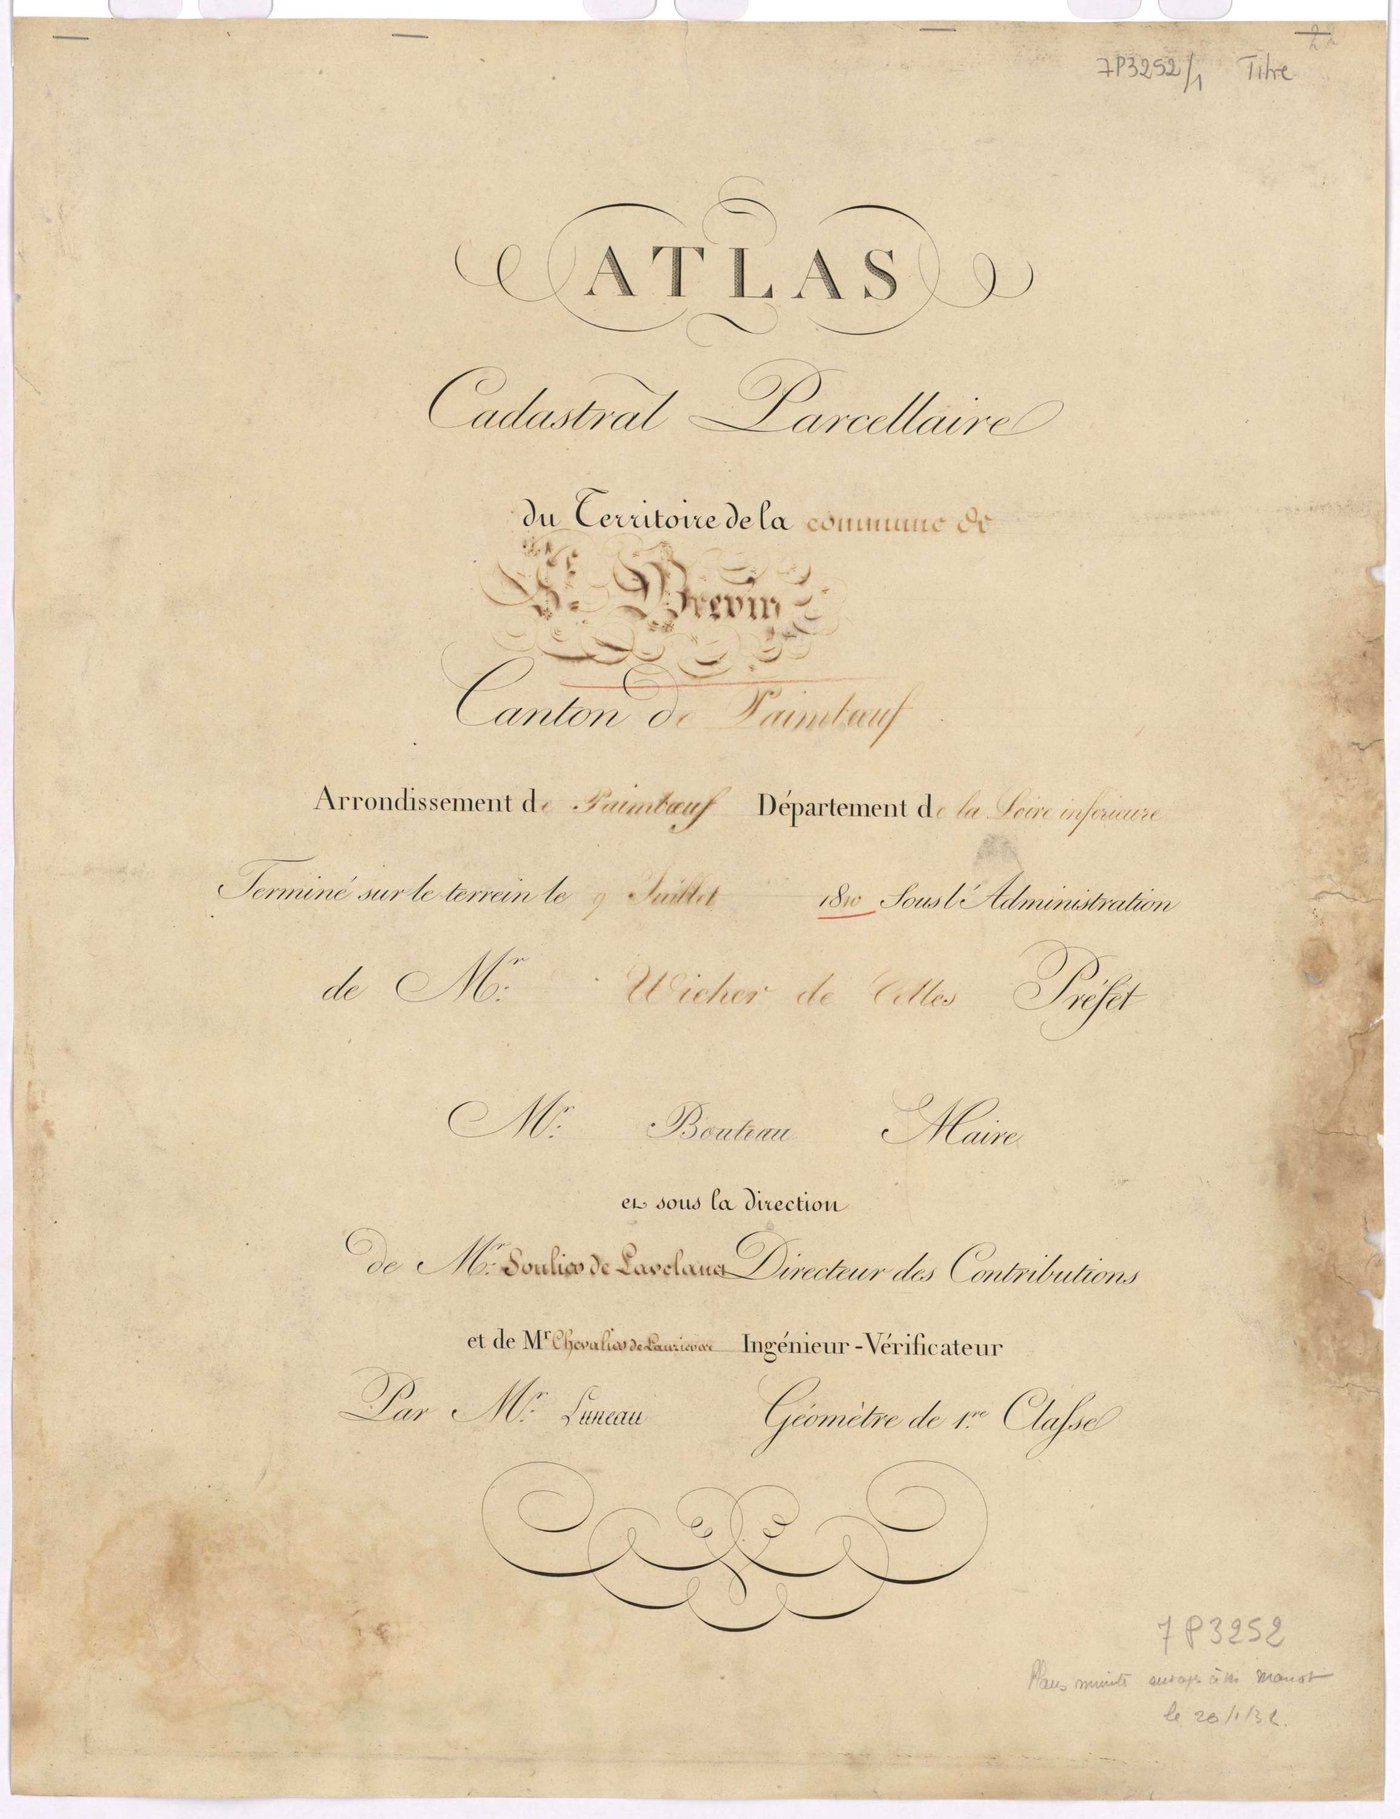 7P3252/1 Titre
ATLAS
Cadastral Parcellaire
du Territoire de la commune de
St. Brevin
Canton de Paimbœuf
Arrondissement de Paimbœuf Département de la Loire inférieure
Terminé sur le terrein le 9 Juillet 1810 Sous l'Administration
de Mr. Wicher de Celles Préfet
Mr. Bouteau Maire
et sous la direction
de Mr. Soulier de Lavelanet Directeur des Contributions
et de Mr Chevalier de Lauzieres Ingénieur-Vérificateur
Par Mr. Luneau Géomètre de 1re. Classe
7P3252
Plans minute
le 20/1/32.